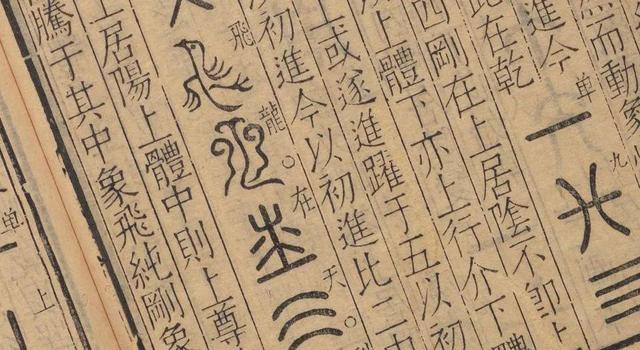 然而動象
進今
此在乾
单 一 九
四剛在上居陰不即上
上體下亦上行介下體
上或遂進躍于五以初
以初進今以初進比二
飛 龍。在 天。
上居陽上體中則上尊
騰于其中象飛純剛象
单 上